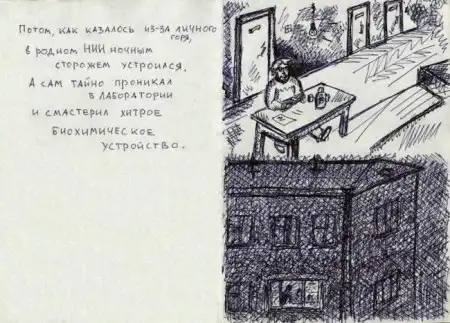 Потом, как казалось из-за личного
горя,
в родном НИИ ночным
сторожем устроился.
А сам тайно проникал
в лаборатории
и смастерил хитрое
биохимическое
устройство.